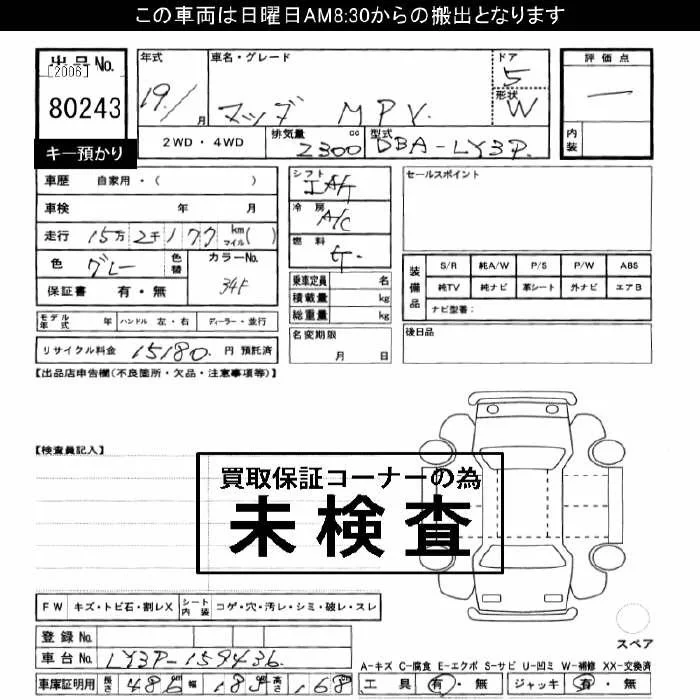 この車両は日曜日AM8:30からの搬出となります
出品No.
[2006]
80243
キー預かり
年式
19/1月
車名・グレード
マツダ MPV
ドア
5
形状
W
評価点
一
内装
2WD・4WD
排気量
2300cc
型式
DBA-LY3P
車歴 自家用・( )
車検 年 月
走行 15万2千177km マイル( )
色 グレー
色替
カラーNo.
34F
保証書 有・無
シフト
IAT
冷房
A/C
燃料
G.
セールスポイント
乗車定員 名
積載量 kg
総重量 kg
装備品
S/R 純A/W P/S P/W ABS
純TV 純ナビ 革シート 外ナビ エアB
ナビ型番:
モデル年式 年 ハンドル 左・右 ディーラー・並行
名変期限
月 日
後日品
リサイクル料金 15180 円 預託済
【出品店申告欄(不良箇所・欠品・注意事項等)】
【検査員記入】
買取保証コーナーの為
未検査
FW キズ・トビ石・割レX シート内装 コゲ・穴・汚レ・シミ・破レ・スレ
スペア
登録No.
車台No. LY3P-159436
A-キズ C-腐食 E-エクボ S-サビ U-凹ミ W-補修 XX-交換済
車庫証明用 長さ 486 幅 185 高さ 168
工具 有・無 ジャッキ 有・無